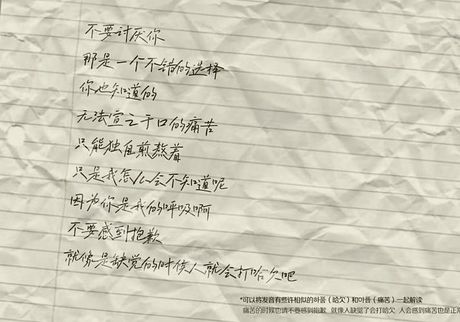 不要讨厌你
那是一个不错的选择
你也知道的
无法宣之于口的痛苦
只能独自煎熬着
只是我怎么会不知道呢
因为你是我的呼吸啊
不要感到抱歉
就像是缺觉的时候人就会打哈欠吧
*可以将发音有些许相似的하품（哈欠）和아픔（痛苦）一起解读
痛苦的时候也请不要感到抱歉 就像人缺觉了会打哈欠 人会感到痛苦也是正常